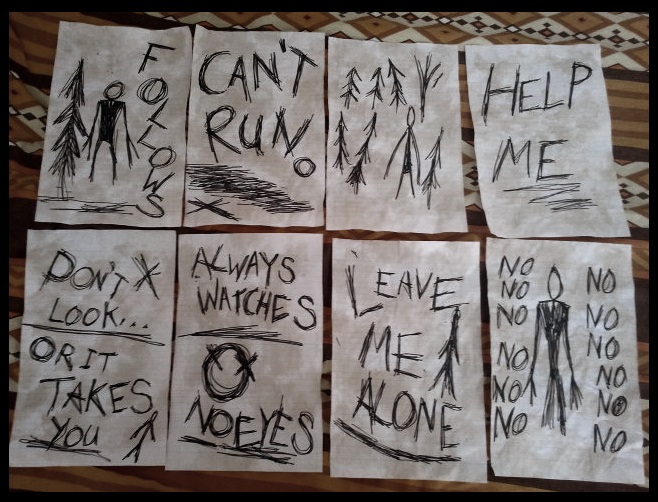 FOLLOWS
CAN'T
RUN.
HELP
ME
DON'T
LOOK...
OR IT
TAKES
YOU
ALWAYS
WATCHES
NO EYES
LEAVE
ME
ALONE
NO NO
NO NO
NO NO
NO NO
NO NO
NO NO